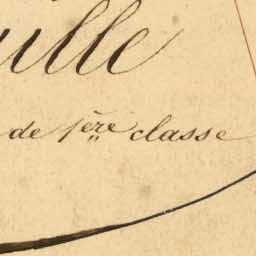 ulle
de 1ère classe